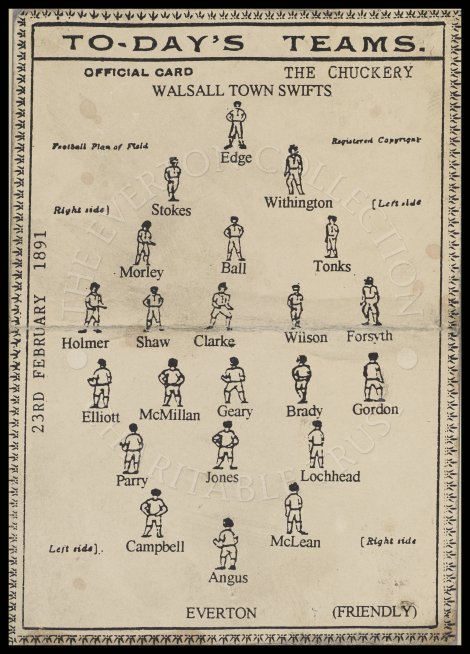 TO-DAY'S TEAMS.
OFFICIAL CARD THE CHUCKERY
WALSALL TOWN SWIFTS
Football Plan of Field Registered Copyright
Edge
Stokes Withington
Right side] [Left side
Morley Ball Tonks
Holmer Shaw Clarke Wilson Forsyth
23RD FEBRUARY 1891
Elliott McMillan Geary Brady Gordon
Parry Jones Lochhead
Campbell McLean
Left side]. [Right side
Angus
EVERTON (FRIENDLY)
THE EVERTON COLLECTION
CHARITABLE TRUST